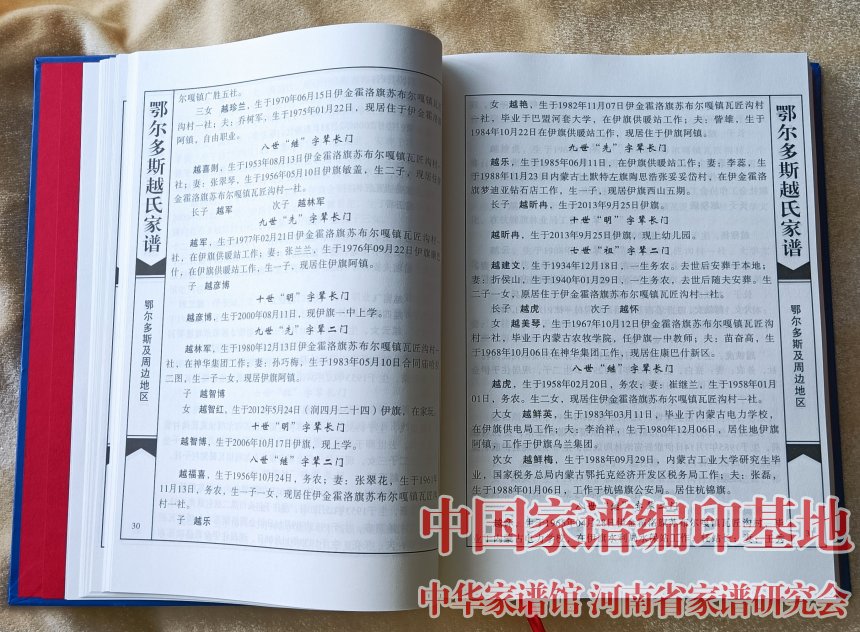 鄂尔多斯越氏家谱
鄂尔多斯及周边地区
尔嘎镇广胜五社。
三女 越珍兰，生于1970年06月15日伊金霍洛旗苏布尔嘎镇瓦匠
沟村一社；夫：乔树军，生于1975年01月22日，现居住于伊金霍洛旗
阿镇，自由职业。
八世“继”字辈长门
越喜则，生于1953年08月13日伊金霍洛旗苏布尔嘎镇瓦匠沟村一
社；妻：张翠琴，生于1956年05月10日伊旗敏盖，生二子，现居住伊
金霍洛旗苏布尔嘎镇瓦匠沟村一社。
长子 越军 次子 越林军
九世“先”字辈长门
越军，生于1977年02月21日伊金霍洛旗苏布尔嘎镇瓦匠沟村一
社，在伊旗供暖站工作；妻：张兰兰，生于1976年09月22日伊旗康巴
什，在伊旗供暖站工作，生一子，现居住伊旗阿镇。
子 越彦博
十世“明”字辈长门
越彦博，生于2000年08月11日，现伊旗一中上学。
九世“先”字辈二门
越林军，生于1980年12月13日伊金霍洛旗苏布尔嘎镇瓦匠沟村一
社，在神华集团工作；妻：孙巧梅，生于1983年05月10日合同庙哈
二图，生一子一女，现居伊旗阿镇。
子 越智博
女 越智红，生于2012年5月24日（润四月二十四）伊旗，在家玩。
十世“明”字辈长门
越智博，生于2006年10月17日伊旗，现上学。
八世“继”字辈二门
越福喜，生于1956年10月24日，务农；妻：张翠花，生于1961年
11月13日，务农，生一子一女，现居住伊金霍洛旗苏布尔嘎镇瓦匠沟
村一社。
子 越乐
30
女 越艳，生于1982年11月07日伊金霍洛旗苏布尔嘎镇瓦匠沟村
一社，毕业于巴盟河套大学，在伊旗供暖站工作；夫：訾雄，生于
1984年10月22日在伊旗供暖站工作，现居住于伊旗阿镇。
九世“先”字辈长门
越乐，生于1985年06月11日，在伊旗供暖站工作；妻：李蕊，生
于1988年11月23日内蒙古土默特左旗陶思浩张妥妥岱村，在伊金霍洛
旗梦迪亚钻石店工作，生一子，现居伊旗西山五期。
长子 越昕冉，生于2013年9月25日伊旗。
十世“明”字辈长门
越昕冉，生于2013年9月25日伊旗，现上幼儿园。
七世“祖”字辈二门
越建文，生于1934年12月18日，一生务农，去世后安葬于本地；
妻：折侯山，生于1940年01月29日，一生务农，去世后随夫安葬。生
二子一女，原居住于伊金霍洛旗苏布尔嘎镇瓦匠沟村一社。
长子 越虎 次子 越怀
女 越美琴，生于1967年10月12日伊金霍洛旗苏布尔嘎镇瓦匠沟村
一社，毕业于内蒙古农牧学院，任伊旗一中教师；夫：苗奋高，生
于1968年10月06日在神华集团工作，现居住康巴什新区。
八世“继”字辈长门
越虎，生于1958年02月20日，务农；妻：崔继兰，生于1958年01月
01日，务农。生二女，现居住伊金霍洛旗苏布尔嘎镇瓦匠沟村一社。
大女 越鲜英，生于1983年03月11日，毕业于内蒙古电力学校，
在伊旗供电局工作；夫：李治祥，生于1980年12月06日，居住地伊旗
阿镇，工作于伊旗乌兰集团。
次女 越鲜梅，生于1988年09月29日，内蒙古工业大学研究生毕
业，国家税务总局内蒙古鄂托克经济开发区税务局工作；夫：张磊，
生于1988年01月06日，工作于杭锦旗公安局。居住杭锦旗。
鄂尔多斯越氏家谱
鄂尔多斯及周边地区
中国家谱编印基地
中华家谱馆 河南省家谱研究会